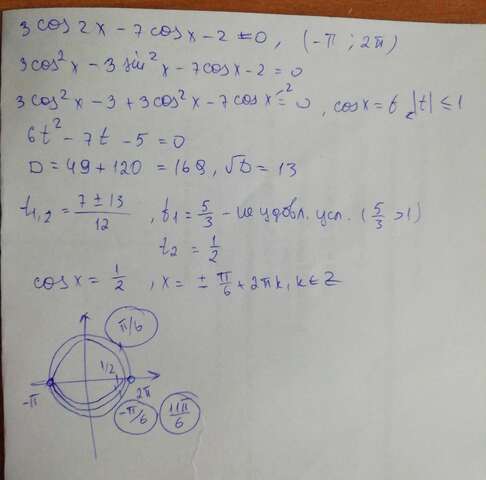 3 cos 2x - 7 cos x - 2 = 0, (-π ; 2π)
3cos²x - 3 sin²x - 7cos x - 2 = 0
3cos²x - 3 + 3cos²x - 7cos x - 2 = 0, cos x = t, |t| ≤ 1
6t² - 7t - 5 = 0
D = 49 + 120 = 169, √D = 13
t₁,₂ = (7 ± 13)/12, t₁ = 5/3 - не удовл. усл. (5/3 > 1)
t₂ = 1/2
cos x = 1/2, x = ± π/6 + 2πk, k ∈ Z
π/6
1/2
-π 2π
-π/6 11π/6